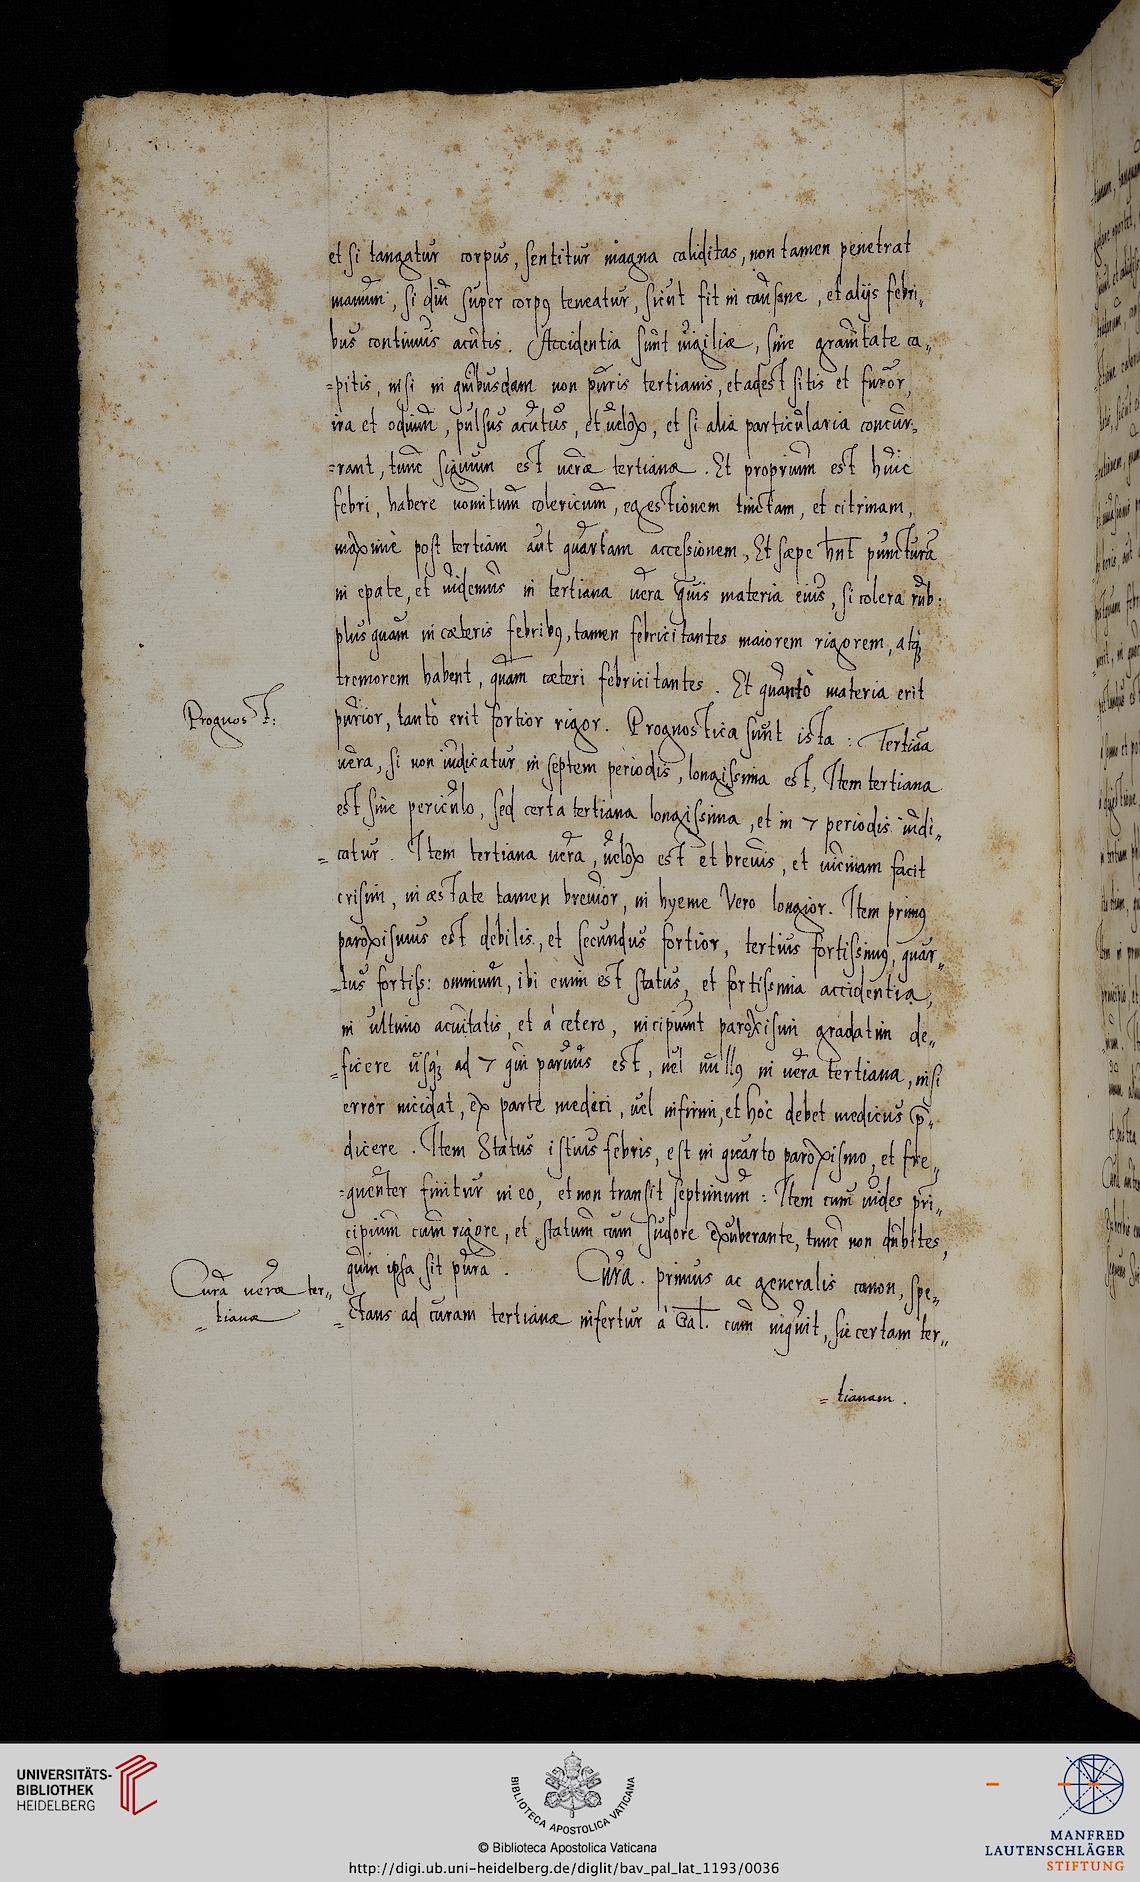 et si tangatur corpus, sentitur magna caliditas, non tamen penetrat
manum, si diu super corpꝰ teneatur, sicut fit in causone, et alijs febri„
bus continuis acutis. Accidentia sunt uigiliæ, sine grauitate ca„
=pitis, nisi in quibusdam non puris tertianis, et adest sitis et furor,
ira et odium, pulsus acutus, et uelox, et si alia particularia concur„
=rant, tunc signum est ueræ tertianæ. Et proprium est huic
febri, habere uomitum colericum, egestionem tinctam, et citrinam,
maximè post tertiam aut quartam accessionem, Et sæpe hn̄t punctura
in epate, et uidemus in tertiana uera quis materia eius, si colera rub:
plus quam in cæteris febribꝰ, tamen febricitantes maiorem rigorem, atqꝫ
tremorem habent, quam cæteri febricitantes. Et quantò materia erit
purior, tantò erit fortior rigor. Prognostica sunt ista: Tertiana
uera, si non iudicatur in septem periodis, longissima est, Item tertiana
est sine periculo, sed certa tertiana longissima, et in 7 periodis iudi„
=catur. Item tertiana uera, uelox est et breuis, et uicinam facit
crisim, in æstate tamen breuior, in hyeme Vero longior. Item primꝰ
paroxismus est debilis, et secundus fortior, tertius fortissimꝰ, quar„
=tus fortiss: omnium, ibi enim est status, et fortissima accidentia,
in ultimo acuitatis, et à cetero, incipiunt paroxismi gradatim de„
=ficere usqꝫ ad 7 qui paruus est, uel nullꝰ in uera tertiana, nisi
error incidat, ex parte medici, uel infirmi, et hoc debet medicus p̄„
dicere. Item Status istius febris, est in quarto paroxismo, et fre„
=quenter finitur in eo, et non transit septimum: Item cum uides pri„
cipium cum rigore, et statum cum sudore exuberante, tunc non dubites,
quin ipsa sit pura. Cura. primus ac generalis canon, spe„
=ctans ad curam tertianæ infertur à Gal. cum inquit, sic certam ter„
=tianam.
Prognost:
Cura ueræ ter„
=tianæ
UNIVERSITÄTS-
BIBLIOTHEK
HEIDELBERG
BIBLIOTECA APOSTOLICA VATICANA
© Biblioteca Apostolica Vaticana
http://digi.ub.uni-heidelberg.de/diglit/bav_pal_lat_1193/0036
MANFRED
LAUTENSCHLÄGER
STIFTUNG